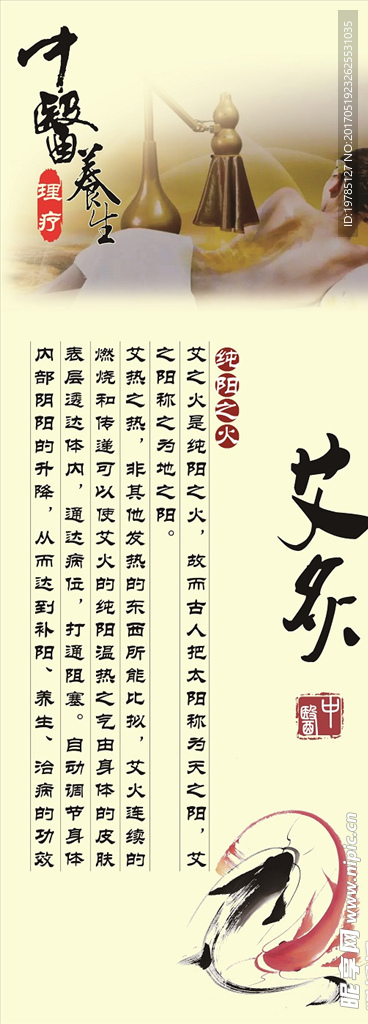 中醫養生
理疗
艾灸
中醫
纯阳之火
艾之火是纯阳之火，故而古人把太阳称为天之阳，艾
之阳称之为地之阳。
艾热之热，非其他发热的东西所能比拟，艾火连续的
燃烧和传递可以使艾火的纯阳温热之气由身体的皮肤
表层透达体内，通达病位，打通阻塞。自动调节身体
内部阴阳的升降，从而达到补阳、养生、治病的功效
ID:19785127 NO:20170519232625531035
昵享网 www.nipic.cn